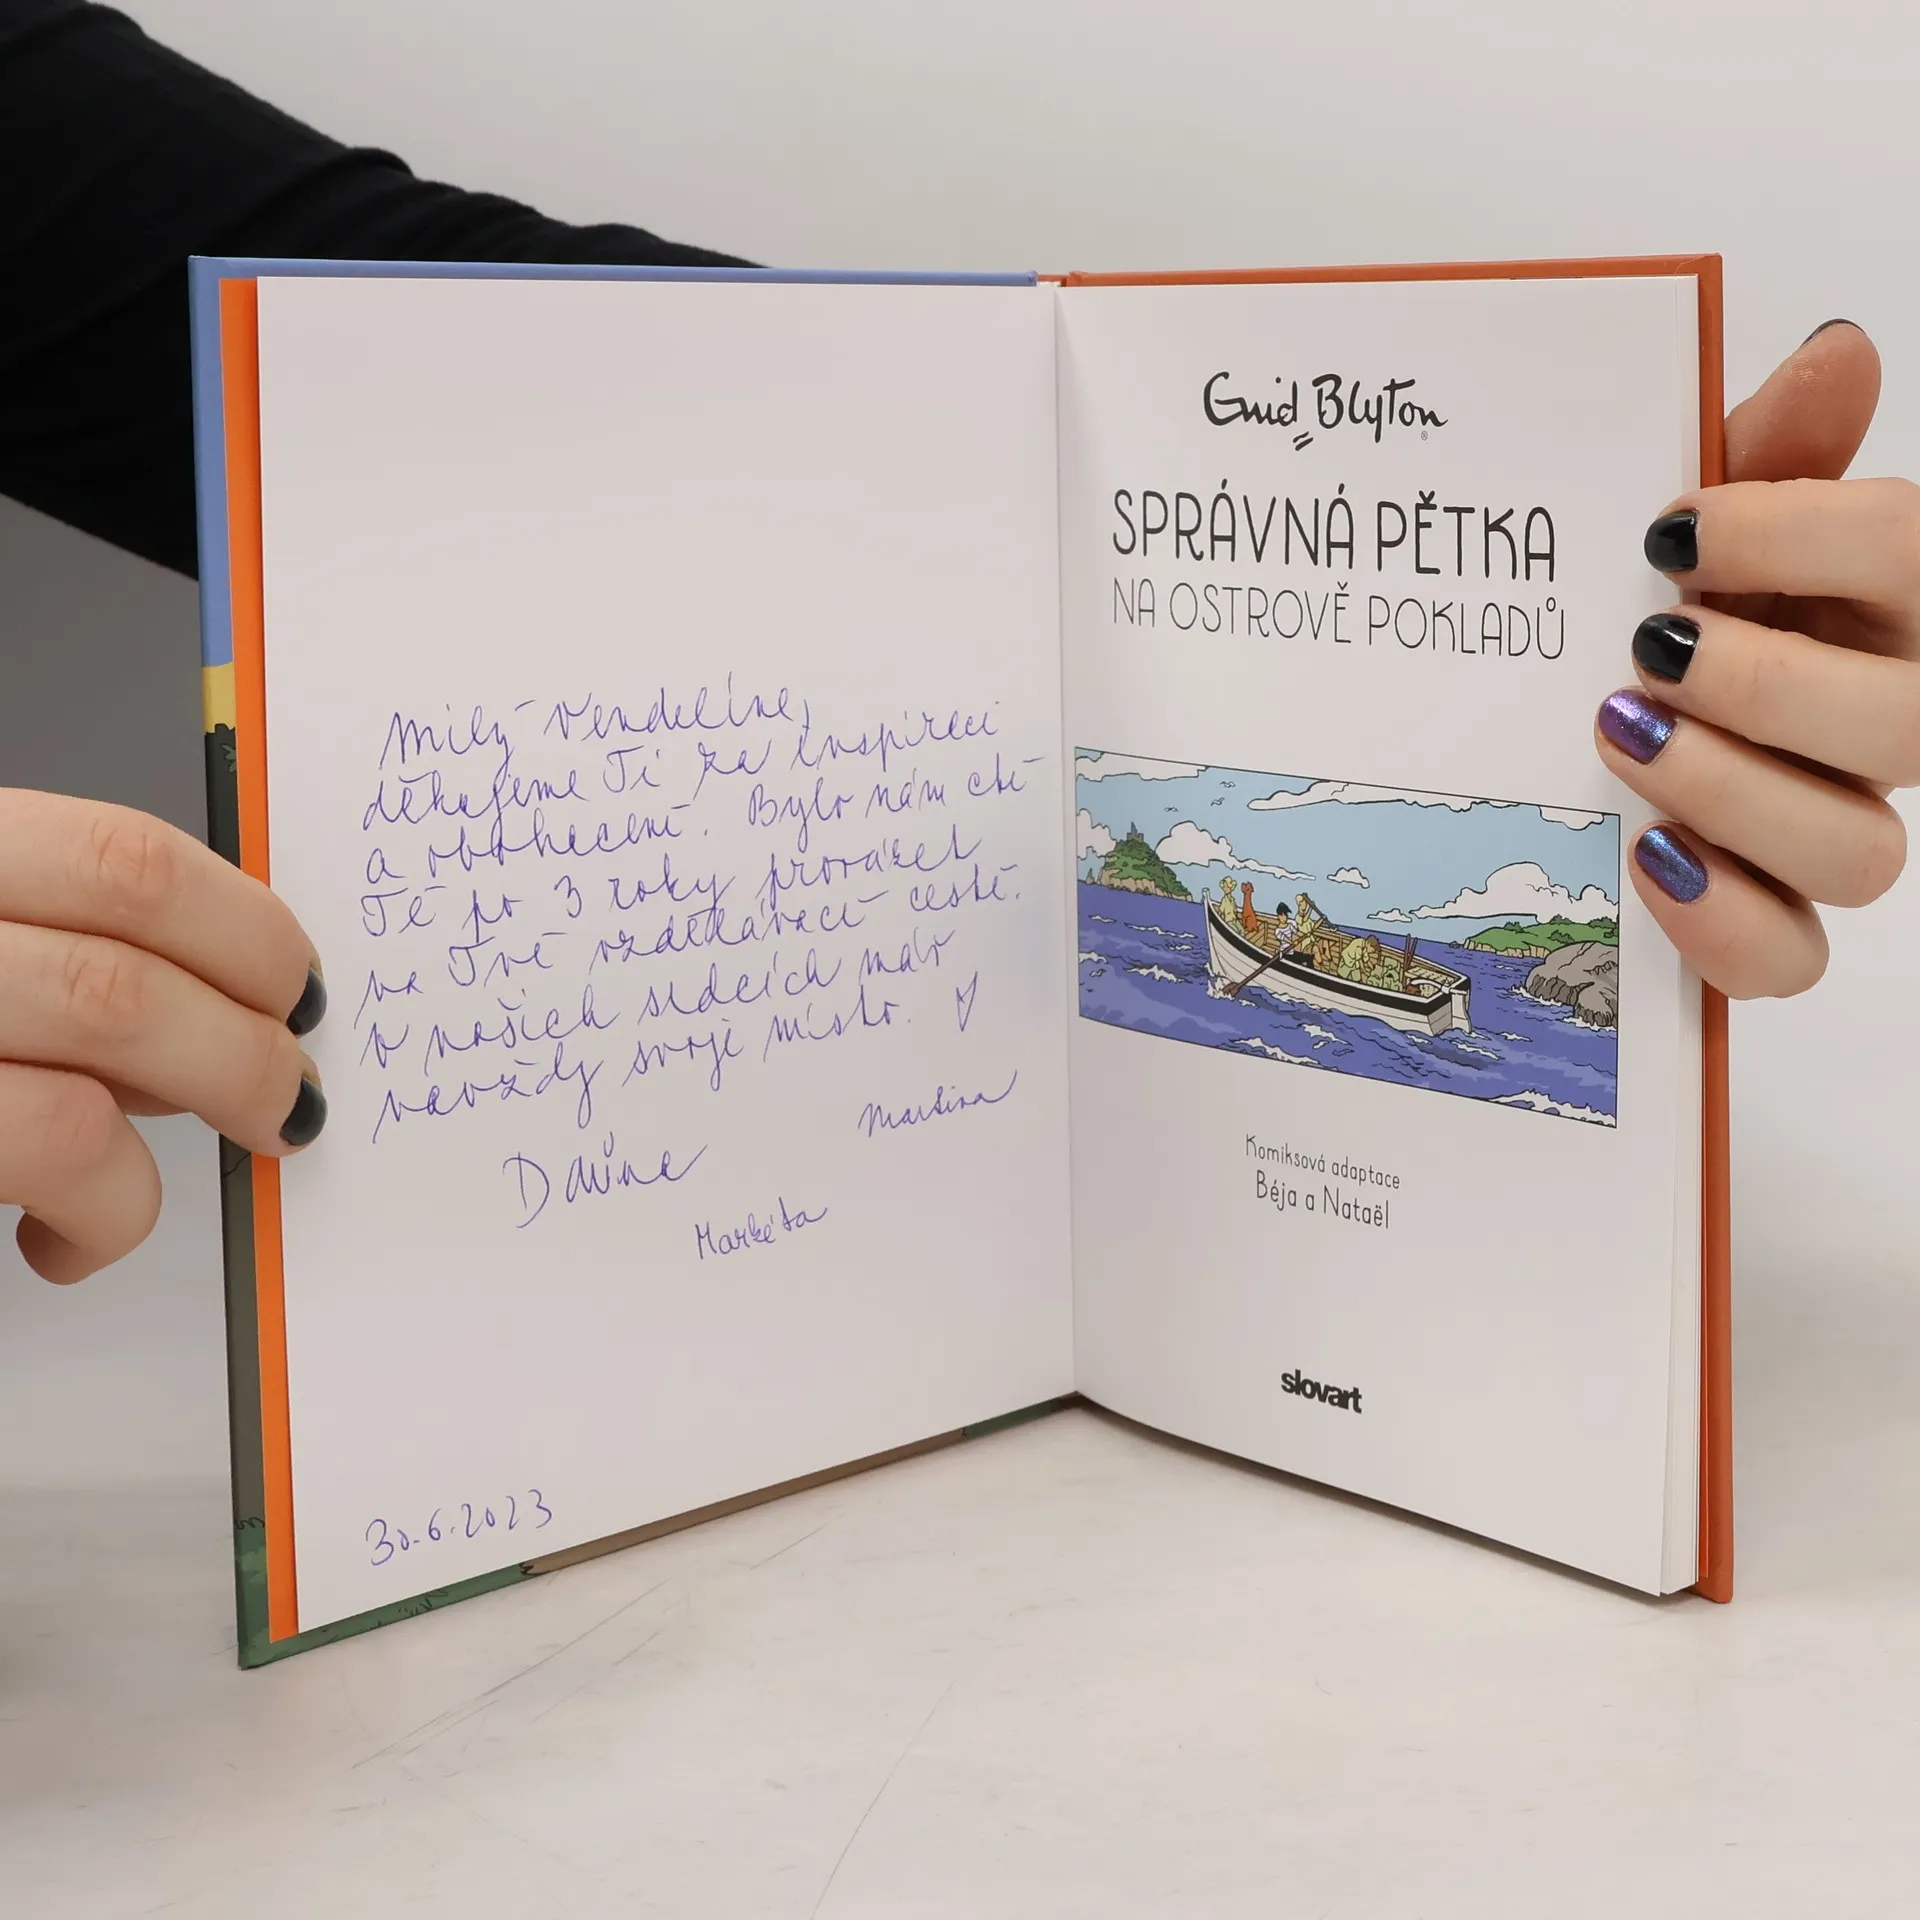 Milý Vendelíne,
děkujeme Ti za inspiraci
a obohacení. Bylo nám ctí
Tě po 3 roky provázet
na Tvé vzdělávací cestě.
V našich srdcích máš
navždy svoje místo. ♡
Martina
Markéta
30.6.2023
Enid Blyton®
SPRÁVNÁ PĚTKA
NA OSTROVĚ POKLADŮ
Komiksová adaptace
Béja a Nataël
slovart